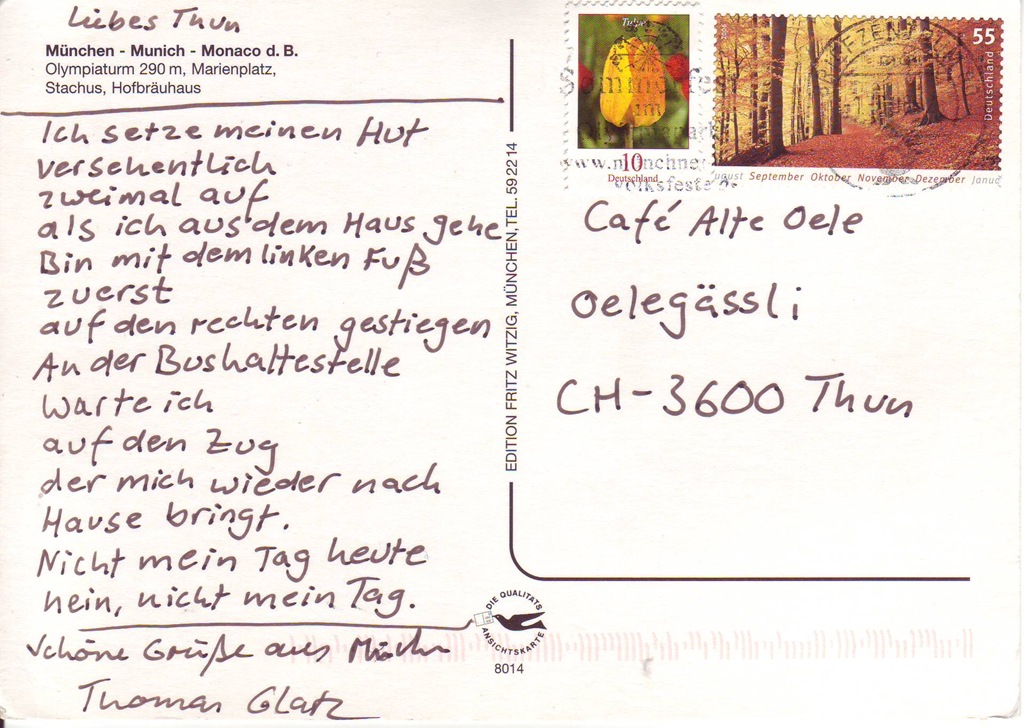 Liebes Thun
München - Munich - Monaco d. B.
Olympiaturm 290 m, Marienplatz,
Stachus, Hofbräuhaus
Ich setze meinen Hut
versehentlich
zweimal auf
als ich aus dem Haus gehe
Bin mit dem linken Fuß
zuerst
auf den rechten gestiegen
An der Bushaltestelle
Warte ich
auf den Zug
der mich wieder nach
Hause bringt.
Nicht mein Tag heute
nein, nicht mein Tag.
Schöne Grüße aus
Thomas Glatz
EDITION FRITZ WITZIG, MÜNCHEN, TEL. 59 22 14
DIE QUALITÄTS
ANSICHTSKARTE
8014
Tulpe
10
Deutschland
55
Deutschland
August September Oktober November Dezember Januar
Café Alte Oele
Oelegässli
CH-3600 Thun